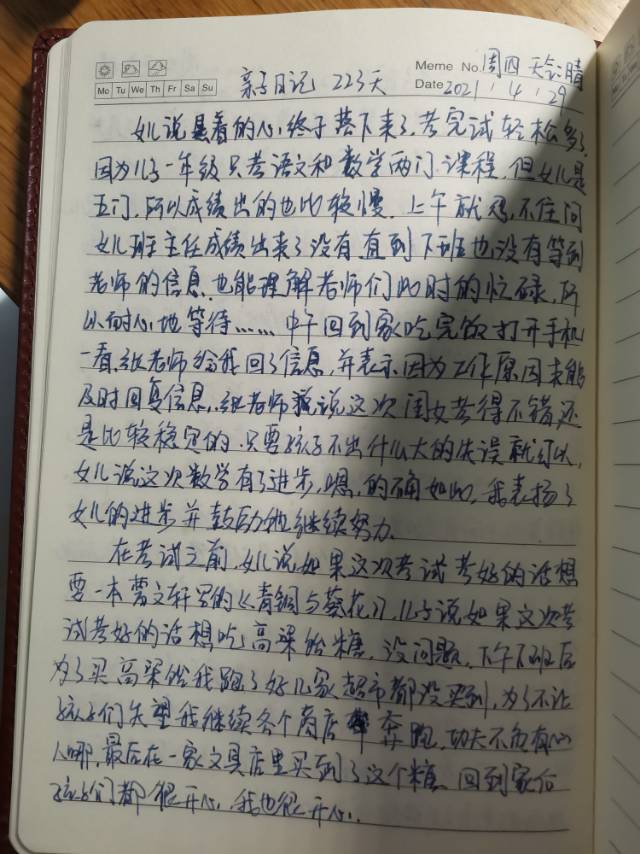 Meme No. 周四 天气:晴
Mo Tu We Th Fr Sa Su
亲子日记 223天
Date 2021.4.29
女儿说悬着的心终于落下来了,考完试轻松多了,
因为儿子一年级只考语文和数学两门课程,但女儿是
五门,所以成绩出的也比较慢。上午就忍不住问
女儿班主任成绩出来了没有,直到下班也没有等到
老师的信息,也能理解老师们此时的忙碌,所
以耐心地等待……中午回到家吃完饭打开手机
一看,张老师给我回了信息,并表示因为工作原因未能
及时回复信息,张老师说这次闺女考得不错,还
是比较稳定的,只要孩子不出什么大的失误就可以,
女儿说这次数学有了进步,嗯,的确如此,我表扬了
女儿的进步并鼓励她继续努力。
在考试之前,女儿说如果这次考试考好的话想
要一本曹文轩写的《青铜与葵花》,儿子说如果这次考
试考好的话想吃高粱饴糖,没问题,下午下班后
为了买高粱饴我跑了好几家超市都没买到,为了不让
孩子们失望我继续各个商店奔跑,功夫不负有心
人哪,最后在一家文具店里买到了这个糖。回到家后
孩子们都很开心,我也很开心。